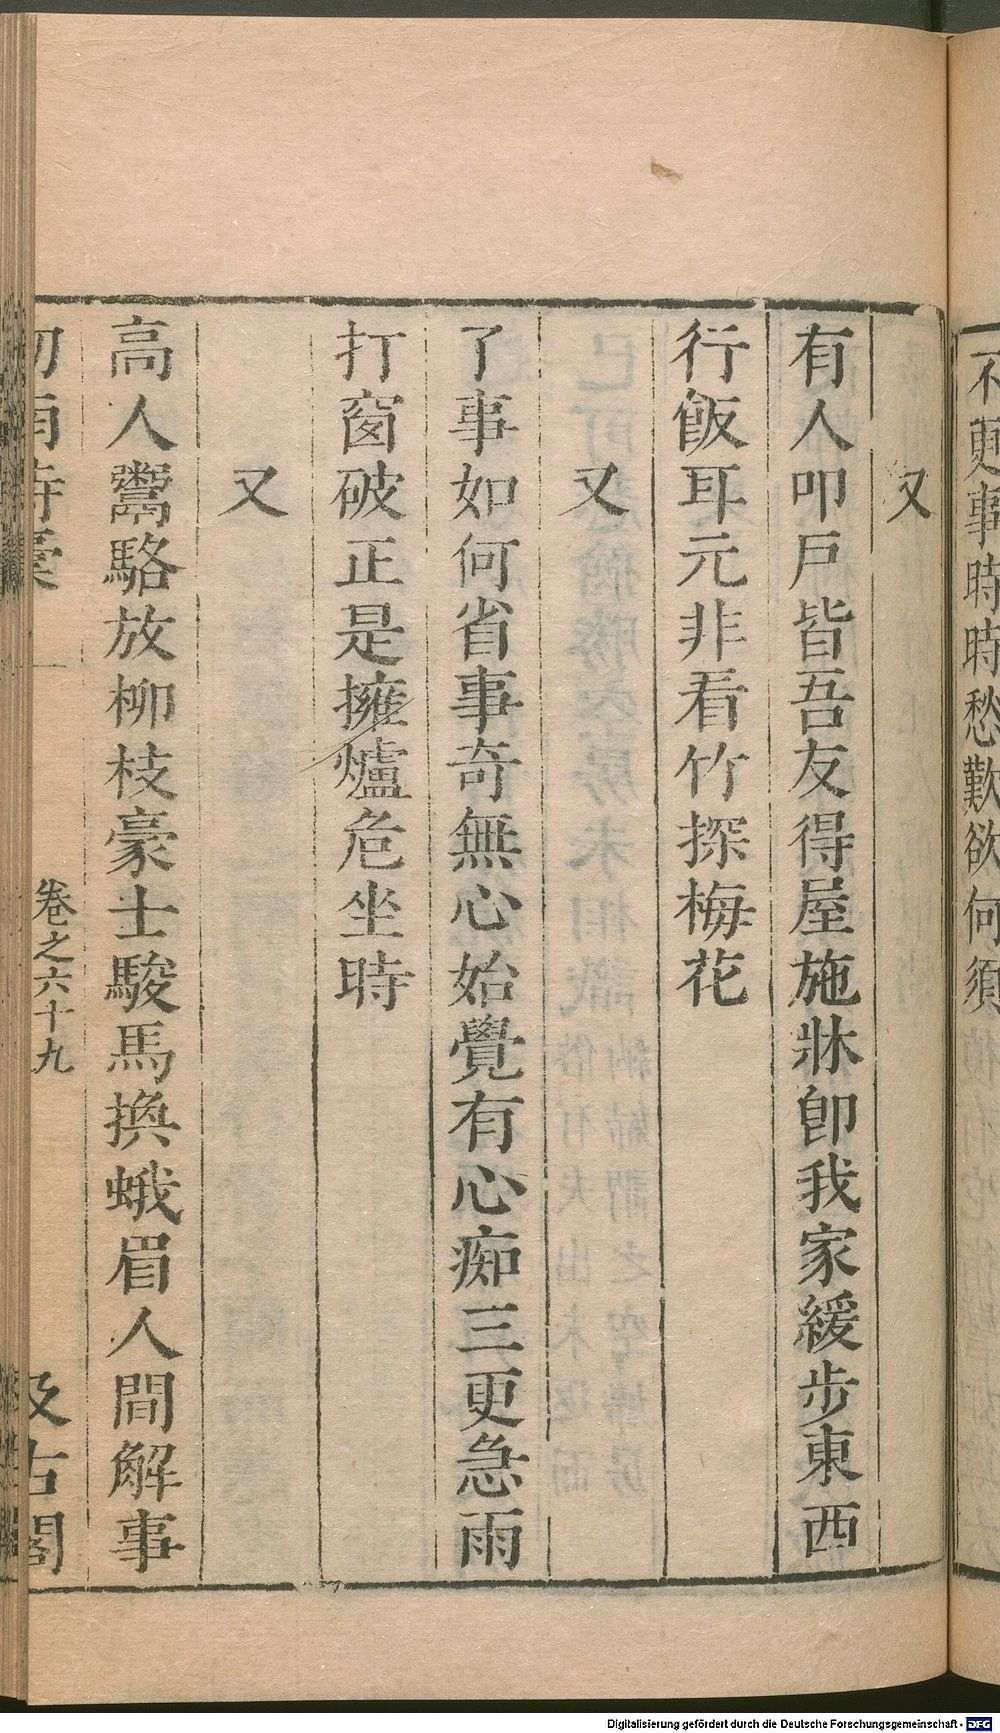 不更事時時愁歎欲何須
又
有人叩戸皆吾友得屋施牀卽我家緩步東西
行飯耳元非看竹探梅花
又
了事如何省事奇無心始覺有心痴三更急雨
打窗破正是擁爐危坐時
又
高人鬻駱放柳枝豪士駿馬換蛾眉人間解事
卷之六十九
汲古閣
Digitalisierung gefördert durch die Deutsche Forschungsgemeinschaft - DFG